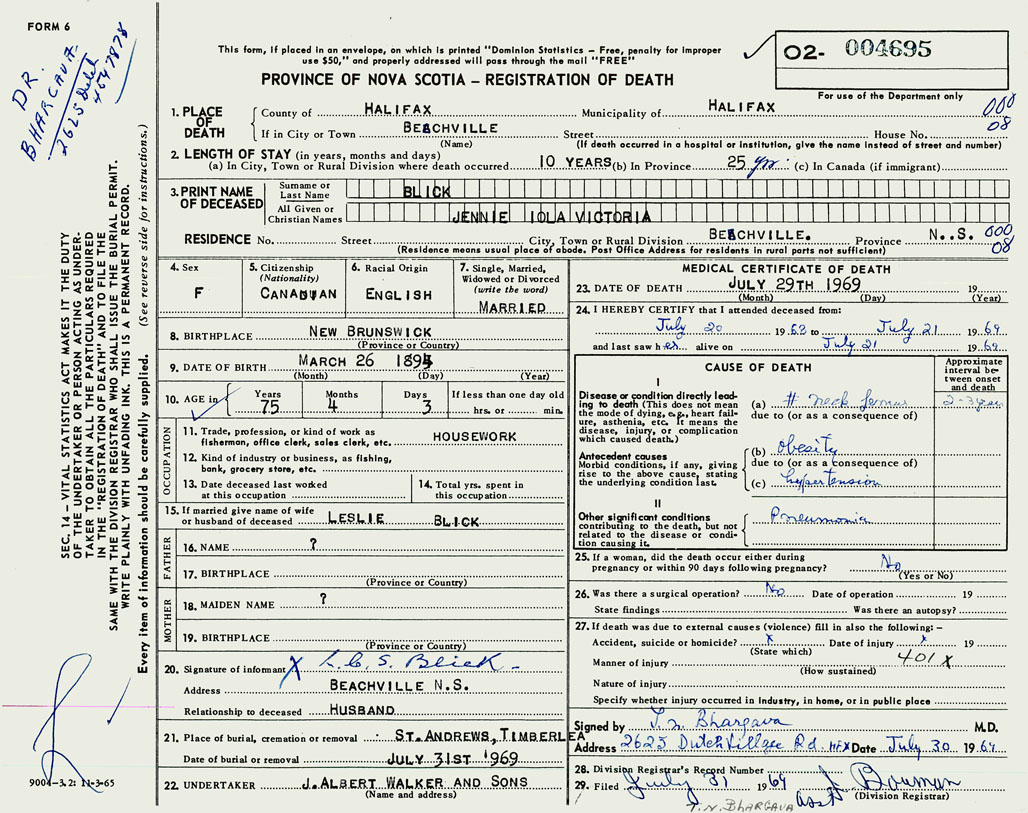 FORM 6
DR. BHARGAVA
2625 Dutch
4547878
This form, if placed in an envelope, on which is printed "Dominion Statistics – Free, penalty for improper
use $50," and properly addressed will pass through the mail "FREE"
PROVINCE OF NOVA SCOTIA – REGISTRATION OF DEATH
O2- 004695
For use of the Department only
1. PLACE OF DEATH
County of HALIFAX Municipality of HALIFAX 000
If in City or Town BEACHVILLE Street House No. 08
(Name) (If death occurred in a hospital or institution, give the name instead of street and number)
2. LENGTH OF STAY (in years, months and days)
(a) In City, Town or Rural Division where death occurred 10 YEARS (b) In Province 25 yrs. (c) In Canada (if immigrant)
3. PRINT NAME OF DECEASED
Surname or Last Name BLICK
All Given or Christian Names JENNIE IOLA VICTORIA
RESIDENCE No. Street City, Town or Rural Division BEECHVILLE. Province N..S. 000
(Residence means usual place of abode. Post Office Address for residents in rural parts not sufficient) 08
4. Sex F
5. Citizenship (Nationality) CANADIAN
6. Racial Origin ENGLISH
7. Single, Married, Widowed or Divorced (write the word) MARRIED
8. BIRTHPLACE NEW BRUNSWICK
(Province or Country)
9. DATE OF BIRTH MARCH 26 1894
(Month) (Day) (Year)
10. AGE in Years 75 Months 4 Days 3 If less than one day old hrs. or min.
OCCUPATION
11. Trade, profession, or kind of work as fisherman, office clerk, sales clerk, etc. HOUSEWORK
12. Kind of industry or business, as fishing, bank, grocery store, etc.
13. Date deceased last worked at this occupation
14. Total yrs. spent in this occupation
15. If married give name of wife or husband of deceased LESLIE BLICK
FATHER
16. NAME ?
17. BIRTHPLACE
(Province or Country)
MOTHER
18. MAIDEN NAME ?
19. BIRTHPLACE
(Province or Country)
20. Signature of informant X L. C. S. Blick
Address BEACHVILLE N.S.
Relationship to deceased HUSBAND
21. Place of burial, cremation or removal ST. ANDREWS, TIMBERLEA
Date of burial or removal JULY 31ST '969
22. UNDERTAKER J. ALBERT WALKER AND SONS
(Name and address)
MEDICAL CERTIFICATE OF DEATH
23. DATE OF DEATH JULY 29TH 1969 19
(Month) (Day) (Year)
24. I HEREBY CERTIFY that I attended deceased from:
July 20 1968 to July 21 1969
and last saw her alive on July 21 1969
CAUSE OF DEATH
Approximate interval between onset and death
I
Disease or condition directly leading to death (This does not mean the mode of dying, e.g., heart failure, asthenia, etc. It means the disease, injury, or complication which caused death.)
(a) # neck femur 2-3 years
due to (or as a consequence of)
Antecedent causes
Morbid conditions, if any, giving rise to the above cause, stating the underlying condition last.
(b) obesity
due to (or as a consequence of)
(c) hypertension
II
Other significant conditions contributing to the death, but not related to the disease or condition causing it.
Pneumonia
25. If a woman, did the death occur either during pregnancy or within 90 days following pregnancy? No
(Yes or No)
26. Was there a surgical operation? No Date of operation 19
State findings Was there an autopsy?
27. If death was due to external causes (violence) fill in also the following: –
Accident, suicide or homicide? x Date of injury x 19
(State which)
Manner of injury 401 x
(How sustained)
Nature of injury
Specify whether injury occurred in industry, in home, or in public place
Signed by T. N. Bhargava M.D.
Address 2625 Dutch Village Rd. HFX Date July 30 1969
28. Division Registrar's Record Number
29. Filed July 31 1969 J. Bowman
Asst (Division Registrar)
T. N. BHARGAVA
SEC. 14 – VITAL STATISTICS ACT MAKES IT THE DUTY
OF THE UNDERTAKER OR PERSON ACTING AS UNDER-
TAKER TO OBTAIN ALL THE PARTICULARS REQUIRED
IN THE "REGISTRATION OF DEATH" AND TO FILE THE
SAME WITH THE DIVISION REGISTRAR WHO SHALL ISSUE THE BURIAL PERMIT.
WRITE PLAINLY WITH UNFADING INK. THIS IS A PERMANENT RECORD.
Every item of information should be carefully supplied. (See reverse side for instructions.)
9004-3.2: 11-3-65